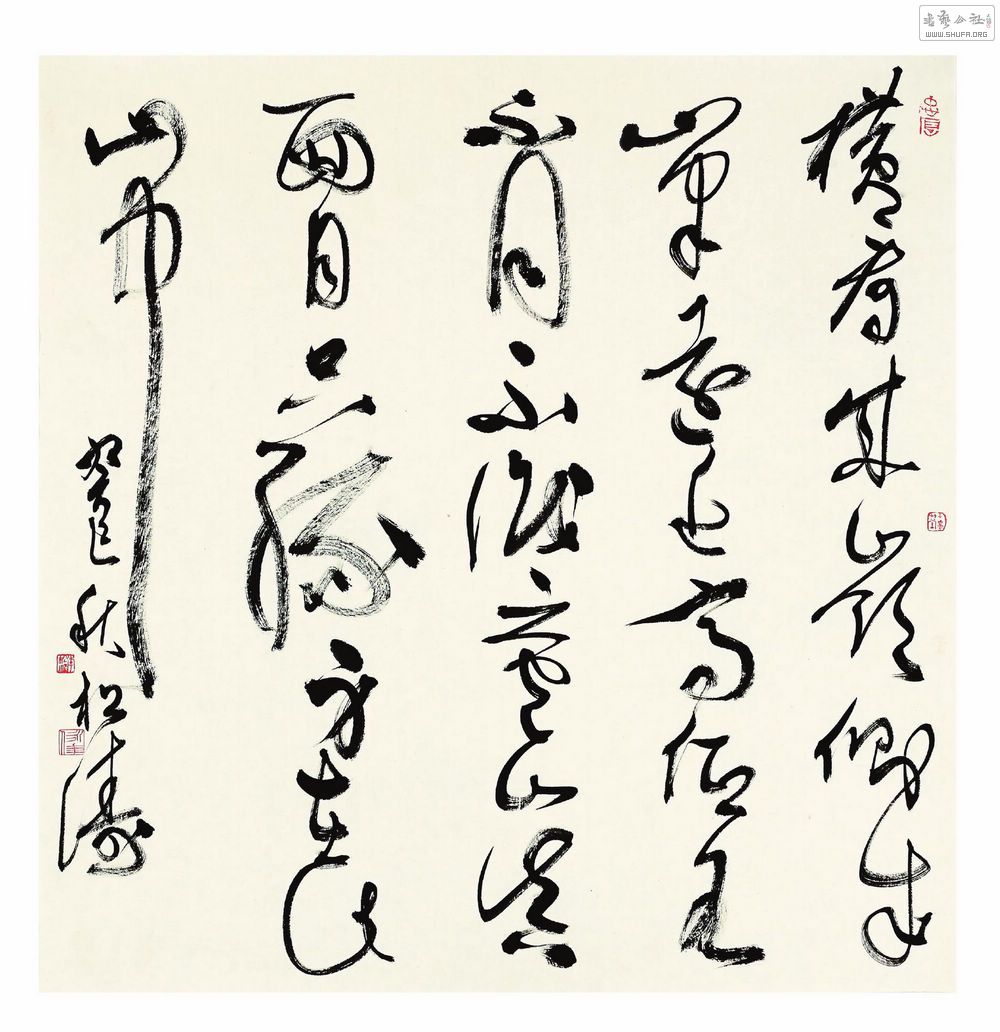 橫看成嶺側成
峯遠近高低各
不同不識廬山真
面目只緣身在此
山中
癸巳秋松濤
书艺公社
WWW.SHUFA.ORG